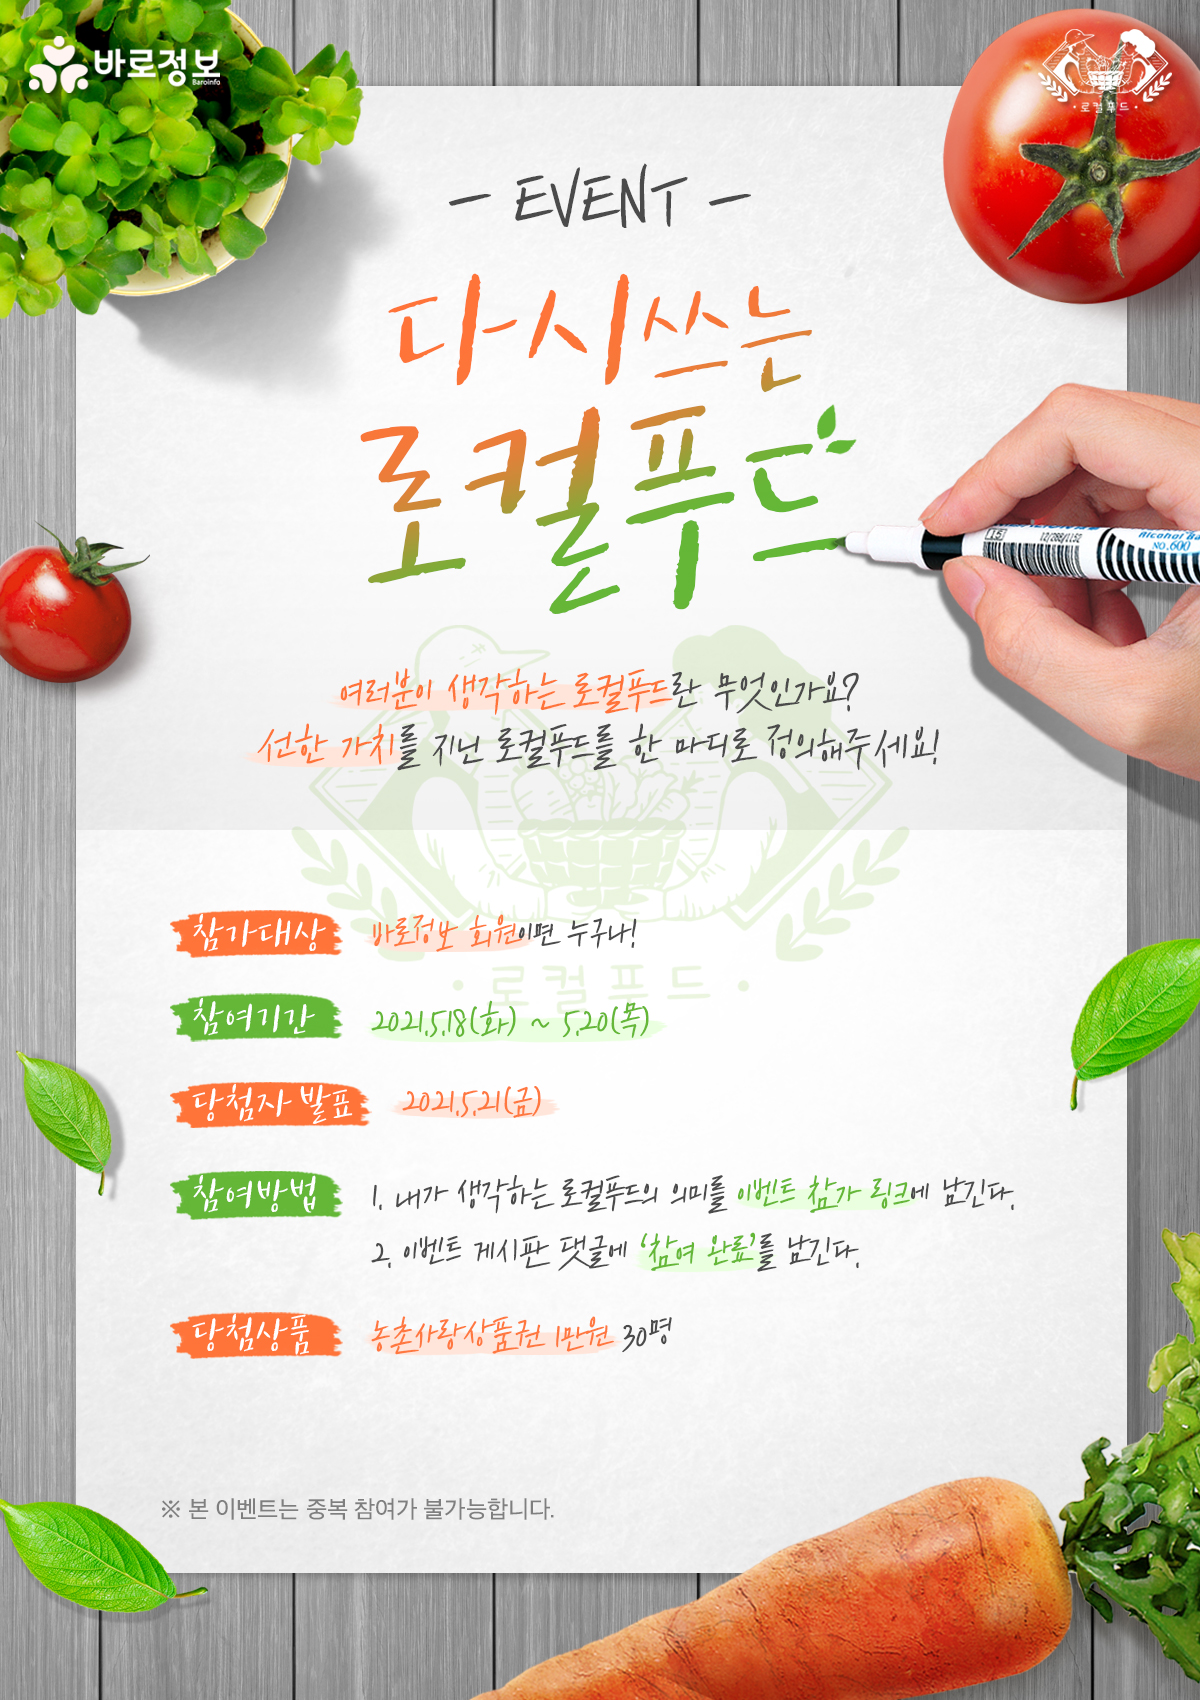 바로정보
Baroinfo
·로컬푸드·
- EVENT -
다시쓰는
로컬푸드
Alcohol Ba
NO.600
12/268/1152
여러분이 생각하는 로컬푸드란 무엇인가요?
선한 가치를 지닌 로컬푸드를 한 마디로 정의해주세요!
참가대상 바로정보 회원이면 누구나!
·로컬푸드·
참여기간 2021.5.18(화) ~ 5.20(목)
당첨자 발표 2021.5.21(금)
참여방법 1. 내가 생각하는 로컬푸드의 의미를 이벤트 참가 링크에 남긴다.
2. 이벤트 게시판 댓글에 '참여 완료'를 남긴다.
당첨상품 농촌사랑상품권 1만원 30명
※ 본 이벤트는 중복 참여가 불가능합니다.